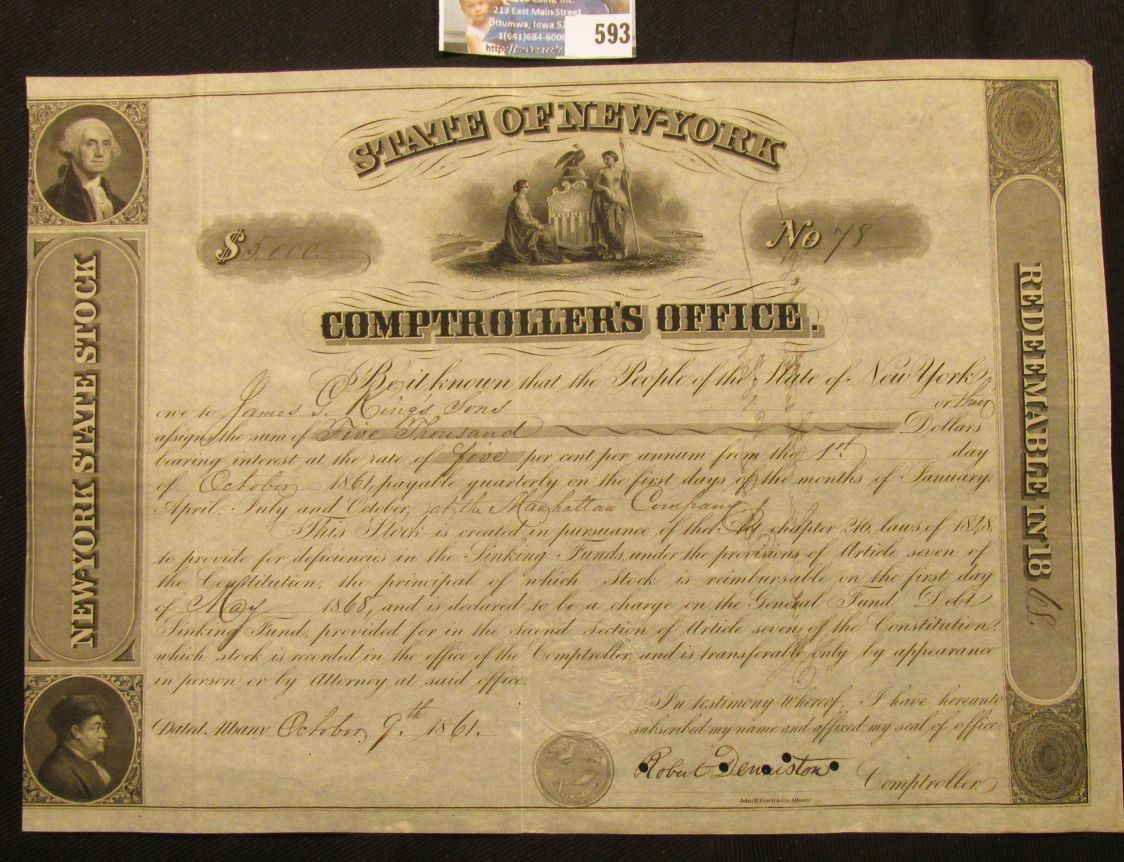 213 East Main Street
Ottumwa, Iowa
1(641)684-6006
593
STATE OF NEW-YORK
$5,000
No 78
COMPTROLLER'S OFFICE.
NEW-YORK STATE STOCK
REDEEMABLE IN 1868.
Be it known that the People of the State of New York
owe to James G. King's Sons or their
assigns the sum of Five Thousand Dollars
bearing interest at the rate of five per cent per annum from the 1st day
of October 1861, payable quarterly on the first days of the months of January,
April, July and October, at the Manhattan Company
This Stock is created in pursuance of the Act chapter 216, laws of 1848,
to provide for deficiencies in the Sinking Funds, under the provisions of Article seven of
the Constitution, the principal of which Stock is reimbursable on the first day
of May 1868, and is declared to be a charge on the General Fund Debt
Sinking Fund, provided for in the second Section of Article seven of the Constitution,
which stock is recorded in the office of the Comptroller, and is transferable only by appearance
in person or by Attorney at said office.
In testimony Whereof, I have hereunto
subscribed my name and affixed my seal of office.
Dated, Albany October 9.th 1861.
Robert Denniston Comptroller
John E. Gavit & Co. Albany